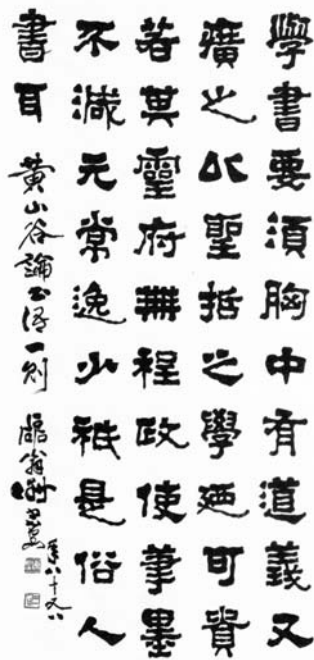 學書要須胸中有道義又
廣之以聖哲之學廼可貴
若其靈府無程政使筆墨
不減元常逸少祗是俗人
書耳 黄山谷論書語一則
年八十又八